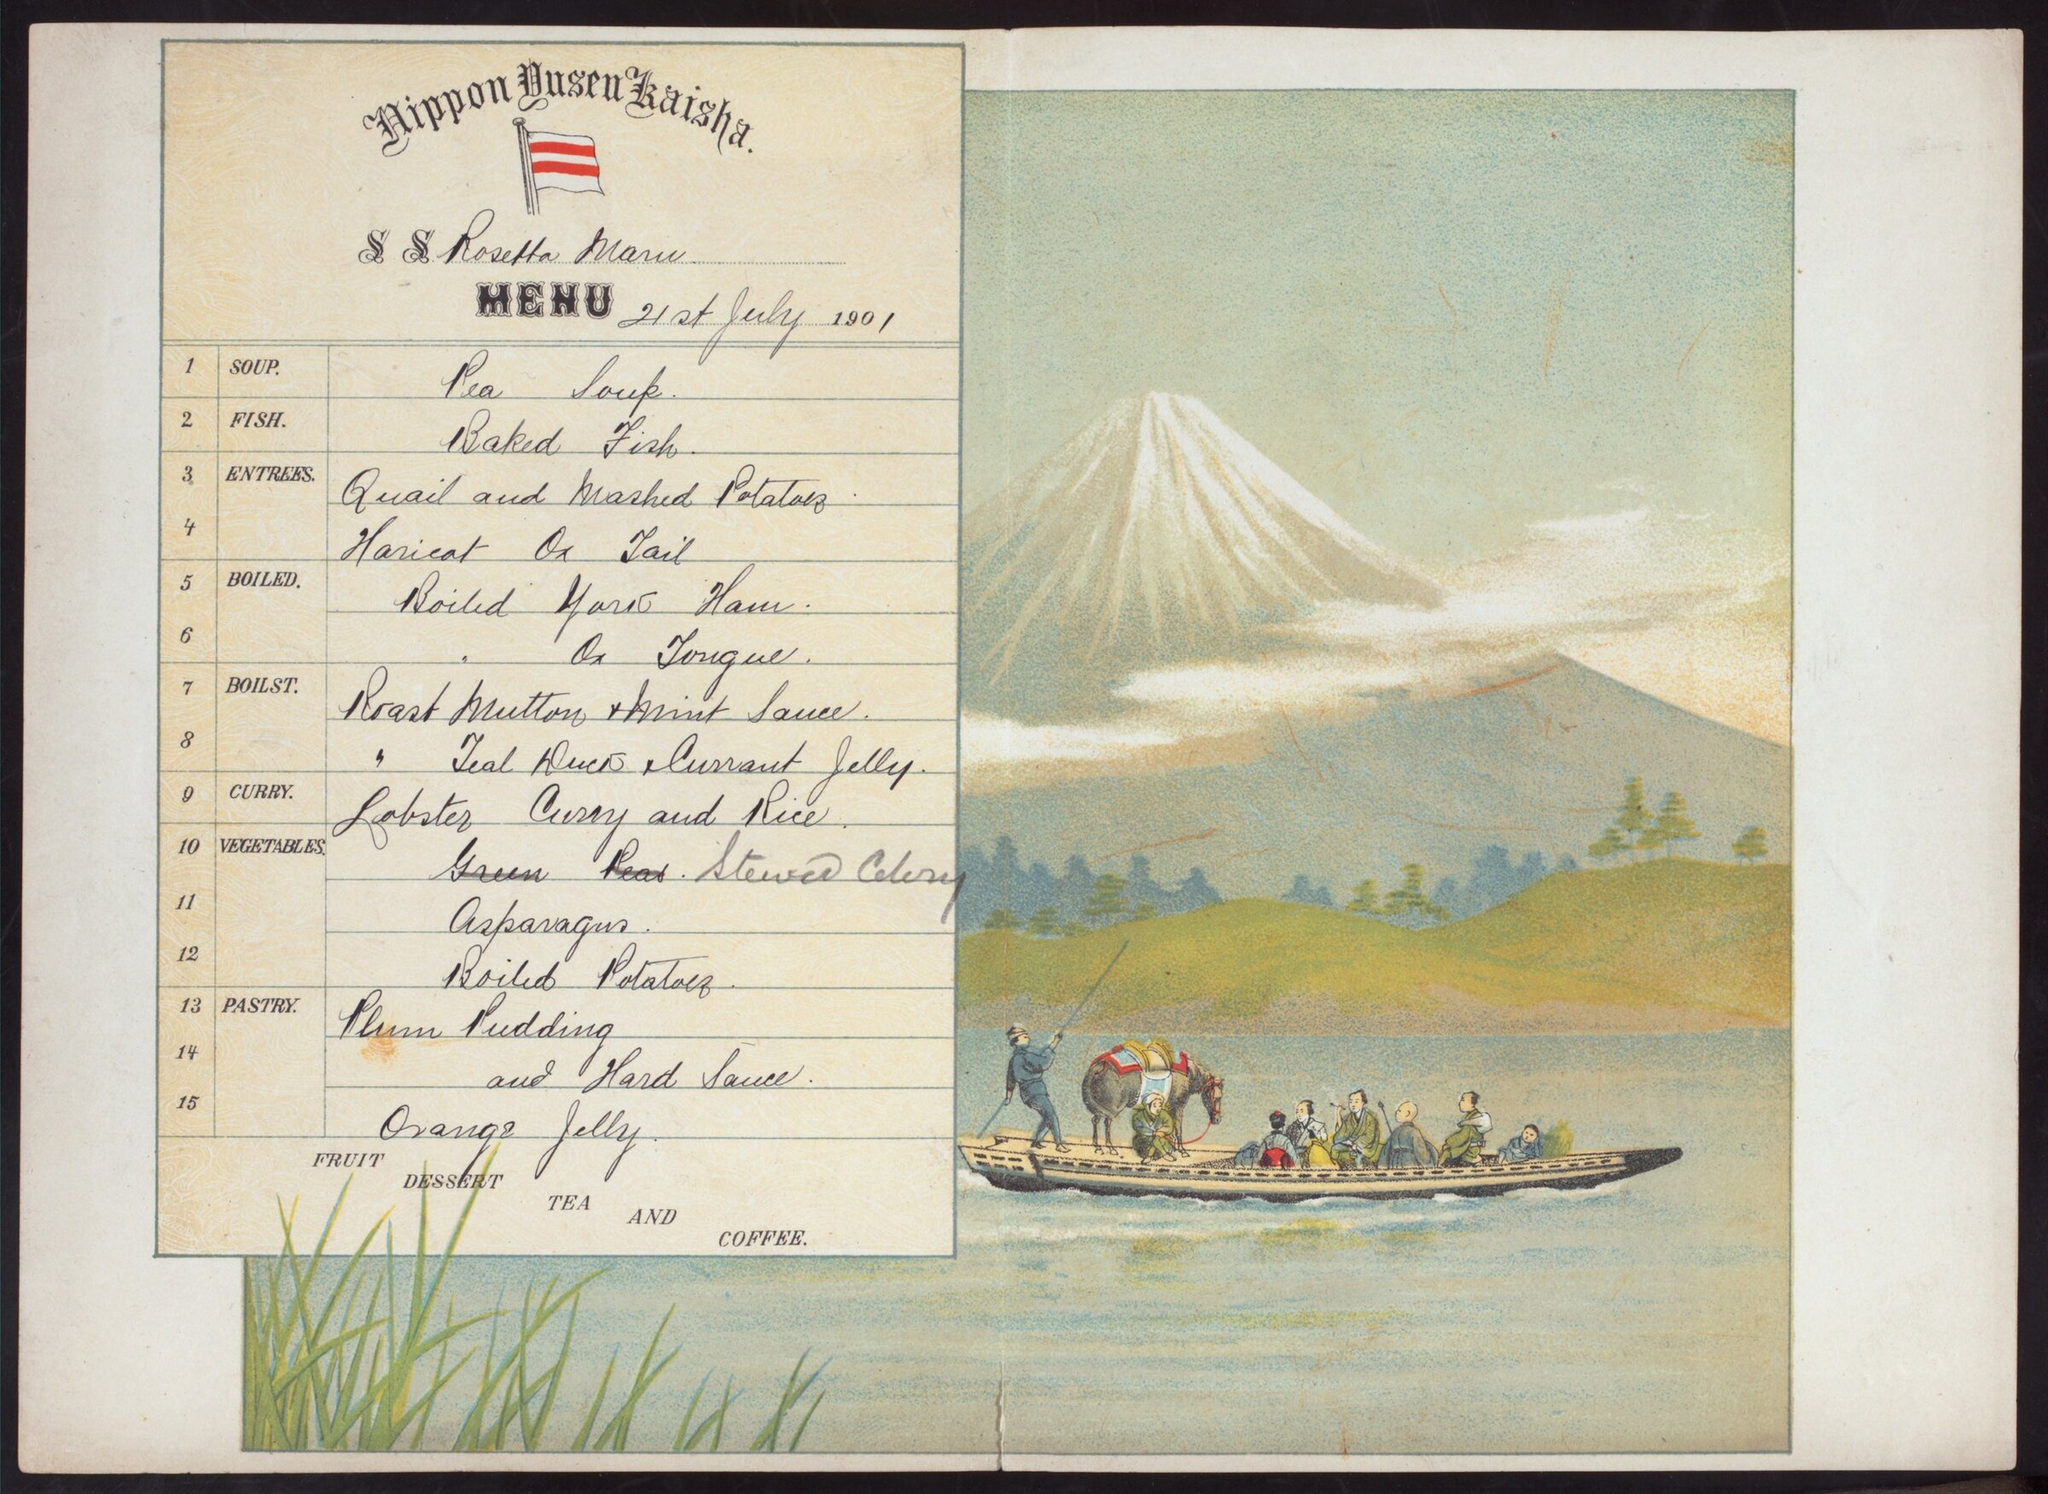 Nippon Yusen Kaisha.
S S Rosetta Maru
MENU 21st July 1901
1 SOUP. Pea Soup.
2 FISH. Baked Fish.
3 ENTREES. Quail and Mashed Potatoes.
4 Haricot Ox Tail
5 BOILED. Boiled York Ham.
6 " Ox Tongue.
7 BOILST. Roast Mutton & Mint Sauce.
8 " Teal Duck & Currant Jelly.
9 CURRY. Lobster Curry and Rice.
10 VEGETABLES. Green Peas. Stewed Celery
11 Asparagus.
12 Boiled Potatoes.
13 PASTRY. Plum Pudding
14 and Hard Sauce.
15 Orange Jelly.
FRUIT
DESSERT
TEA
AND
COFFEE.